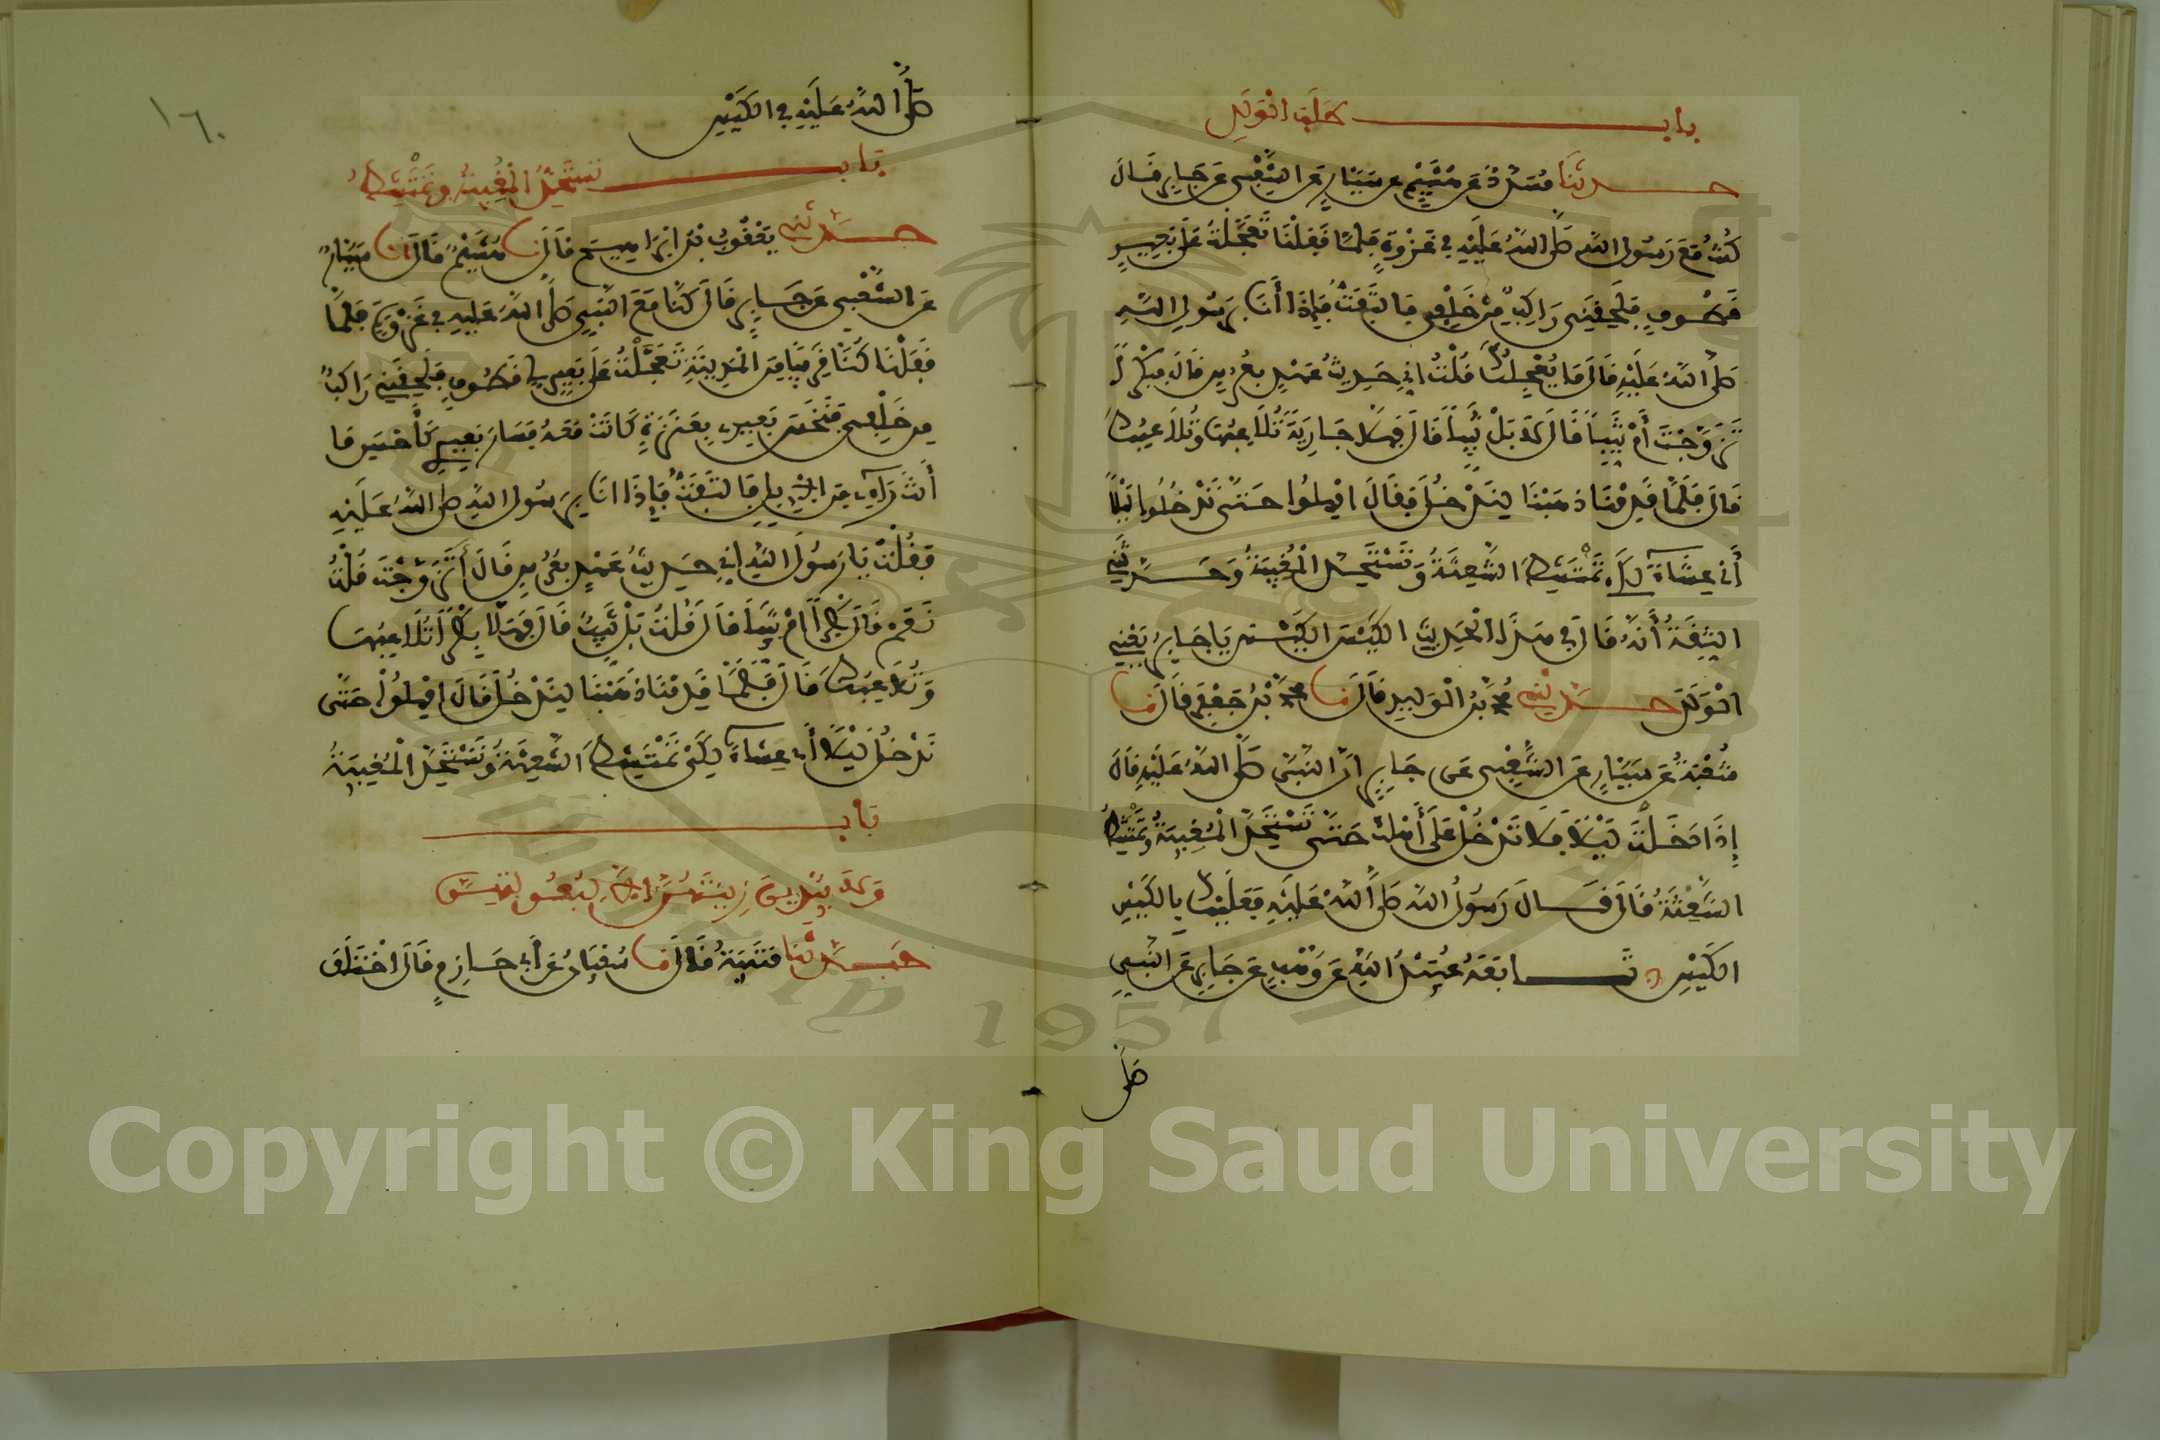 باب طلب الولد
حدثنا مسدد عن هشيم عن سيار عن الشعبي عن جابر قال
كنت مع رسول الله صلى الله عليه في غزوة فلما قفلنا تعجلت على بعير
قطوف فلحقني راكب من خلفي فالتفت فإذا أنا برسول الله
صلى الله عليه قال ما يعجلك قلت اني حديث عهد بعرس قال فبكرا
تزوجت أم ثيبا قال بل ثيبا قال فهلا جارية تلاعبها وتلاعبك
قال فلما قدمنا ذهبنا لندخل فقال امهلوا حتى تدخلوا ليلا
أي عشاء لكي تمتشط الشعثة وتستحد المغيبة وحدثني
الثقة أنه قال في هذا الحديث الكيس الكيس يا جابر يعني
الولد حدثني محمد بن الوليد قال نا محمد بن جعفر قال نا
شعبة عن سيار عن الشعبي عن جابر ان النبي صلى الله عليه قال
إذا دخلت ليلا فلا تدخل على أهلك حتى تستحد المغيبة وتمتشط
الشعثة قال قال رسول الله صلى الله عليه فعليك بالكيس
الكيس تابعه عبيد الله عن وهب عن جابر عن النبي
صلى
١٦٠
صلى الله عليه في الكيس
باب تستحد المغيبة وتمتشط
حدثني يعقوب بن ابراهيم قال نا هشيم قال انا سيار
عن الشعبي عن جابر قال كنا مع النبي صلى الله عليه في غزوة فلما
قفلنا كنا قريبا من المدينة تعجلت على بعير لي قطوف فلحقني راكب
من خلفي فنخس بعيري بعنزة كانت معه فسار بعيري كأحسن ما
أنت راء من الابل فالتفت فإذا انا برسول الله صلى الله عليه
فقلت يا رسول الله اني حديث عهد بعرس قال أتزوجت قلت
نعم قال بكرا ام ثيبا قال قلت بل ثيب قال فهلا بكرا تلاعبها
وتلاعبك قال فلما قدمنا ذهبنا لندخل فقال امهلوا حتى
تدخلوا ليلا أي عشاء لكي تمتشط الشعثة وتستحد المغيبة
باب
ولا يبدين زينتهن الا لبعولتهن
حدثنا قتيبة قال نا سفيان عن أبي حازم قال اختلف
Copyright © King Saud University
1957